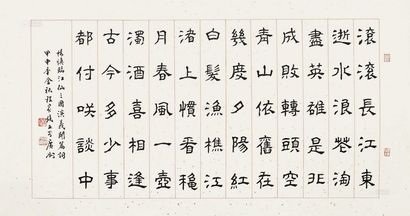 滾滾長江東
逝水浪花淘
盡英雄是非
成敗轉頭空
青山依舊在
幾度夕陽紅
白髮漁樵江
渚上慣看穐
月春風一壺
濁酒喜相逢
古今多少事
都付咲談中
楊慎臨江仙三國演義開篇詞
甲申年金秋